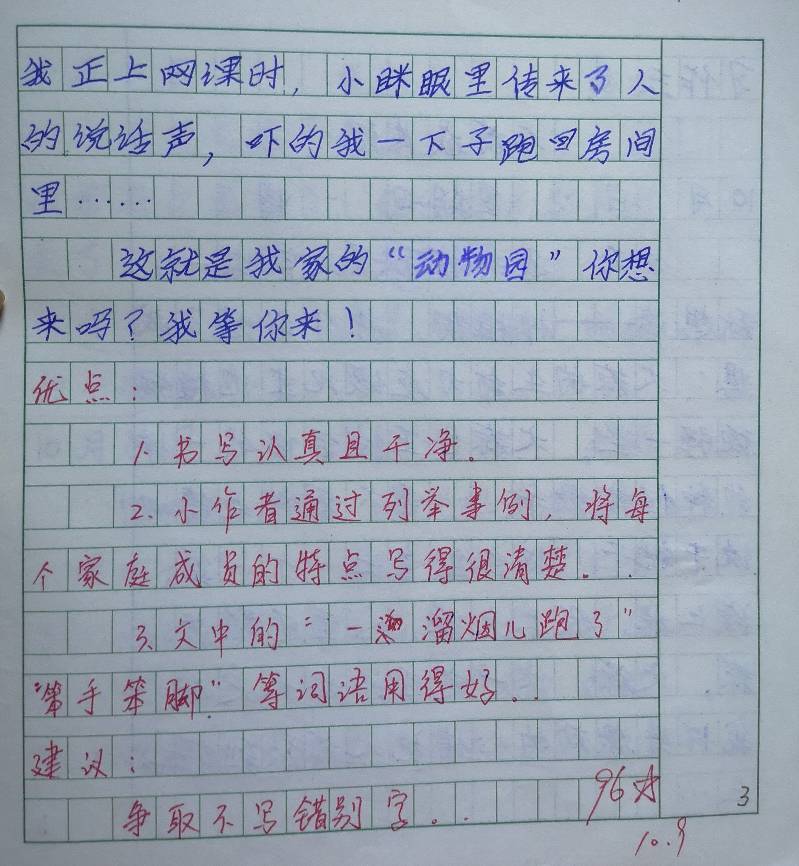 我正上网课时，小眯眼里传来了人
的说话声，吓的我一下子跑回房间
里……
这就是我家的“动物园”你想
来吗？我等你来！
优点：
1.书写认真且干净.
2.小作者通过列举事例，将每
个家庭成员的特点写得很清楚..
3.文中的“一溜烟儿跑了”
“笨手笨脚”等词语用得好..
建议：
争取不写错别字..
96
10.9
3